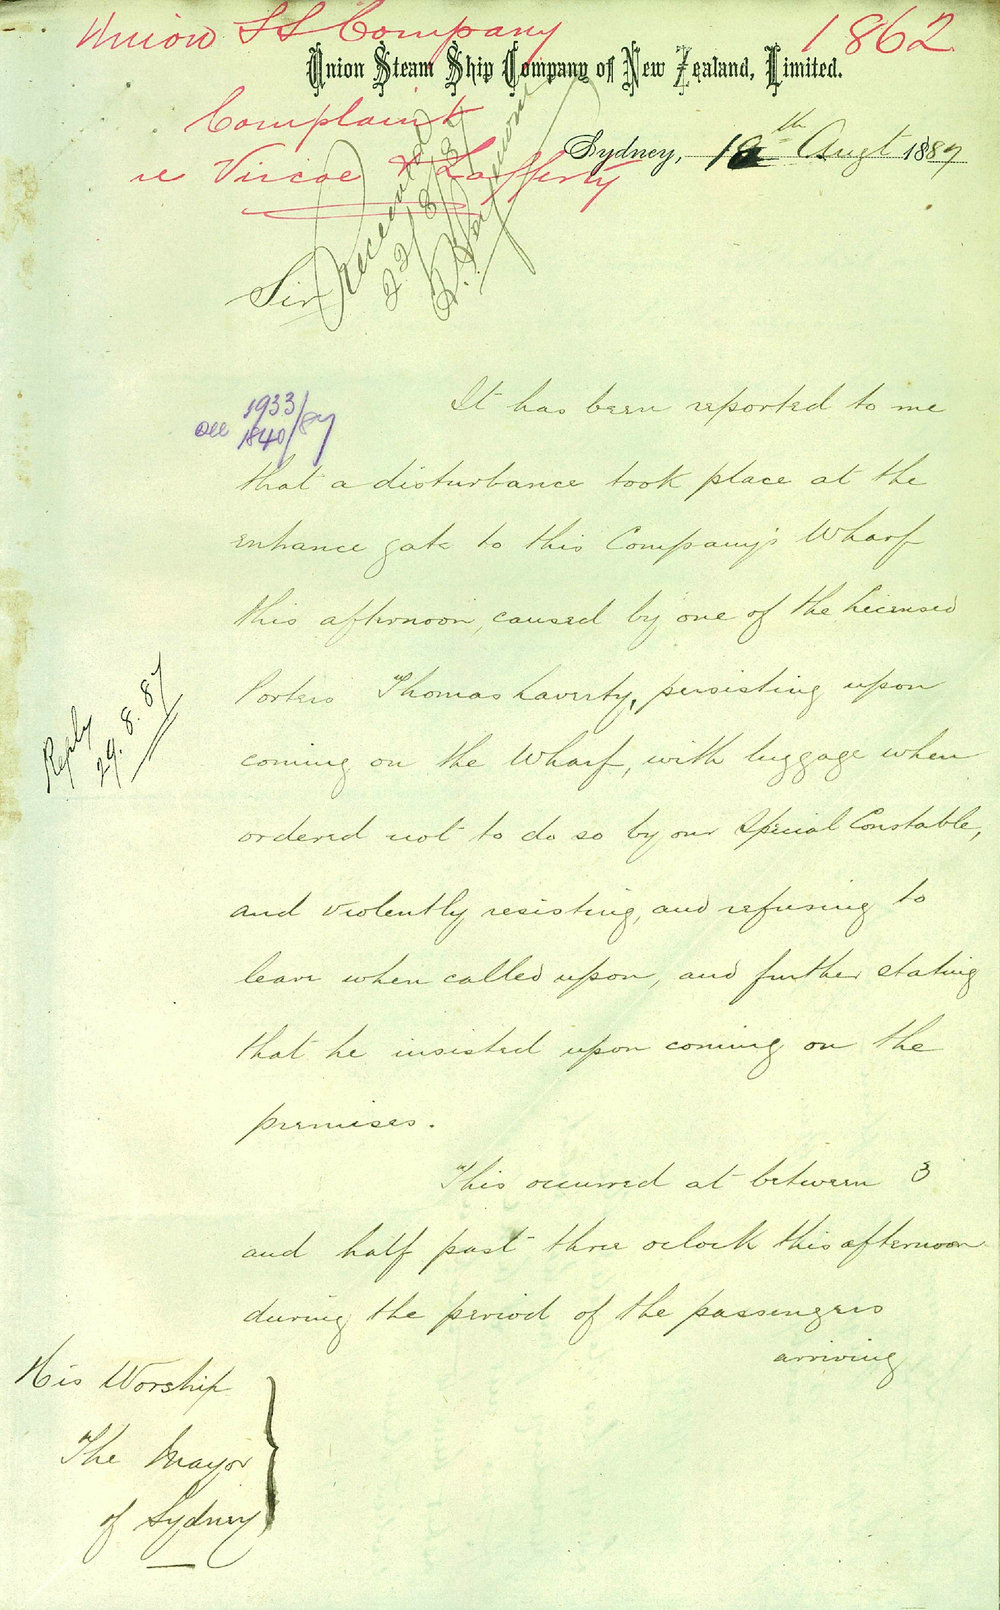 Union SS Company 1862
Union Steam Ship Company of New Zealand, Limited.
Complaint
re Vincoe & Lafferty
Sydney, 18th Augt 1887
22/8/87
Sir
see 1933/
1840/87
It has been reported to me
that a disturbance took place at the
entrance gate to this Company's Wharf
this afternoon, caused by one of the licensed
Porters Thomas Laverty, persisting upon
coming on the Wharf, with luggage when
ordered not to do so by our Special Constable,
and violently resisting, and refusing to
leave when called upon, and further stating
that he insisted upon coming on the
premises.
Reply
29.8.87
This occurred at between 3
and half past three oclock this afternoon
during the period of the passengers
arriving
His Worship
The Mayor
of Sydney